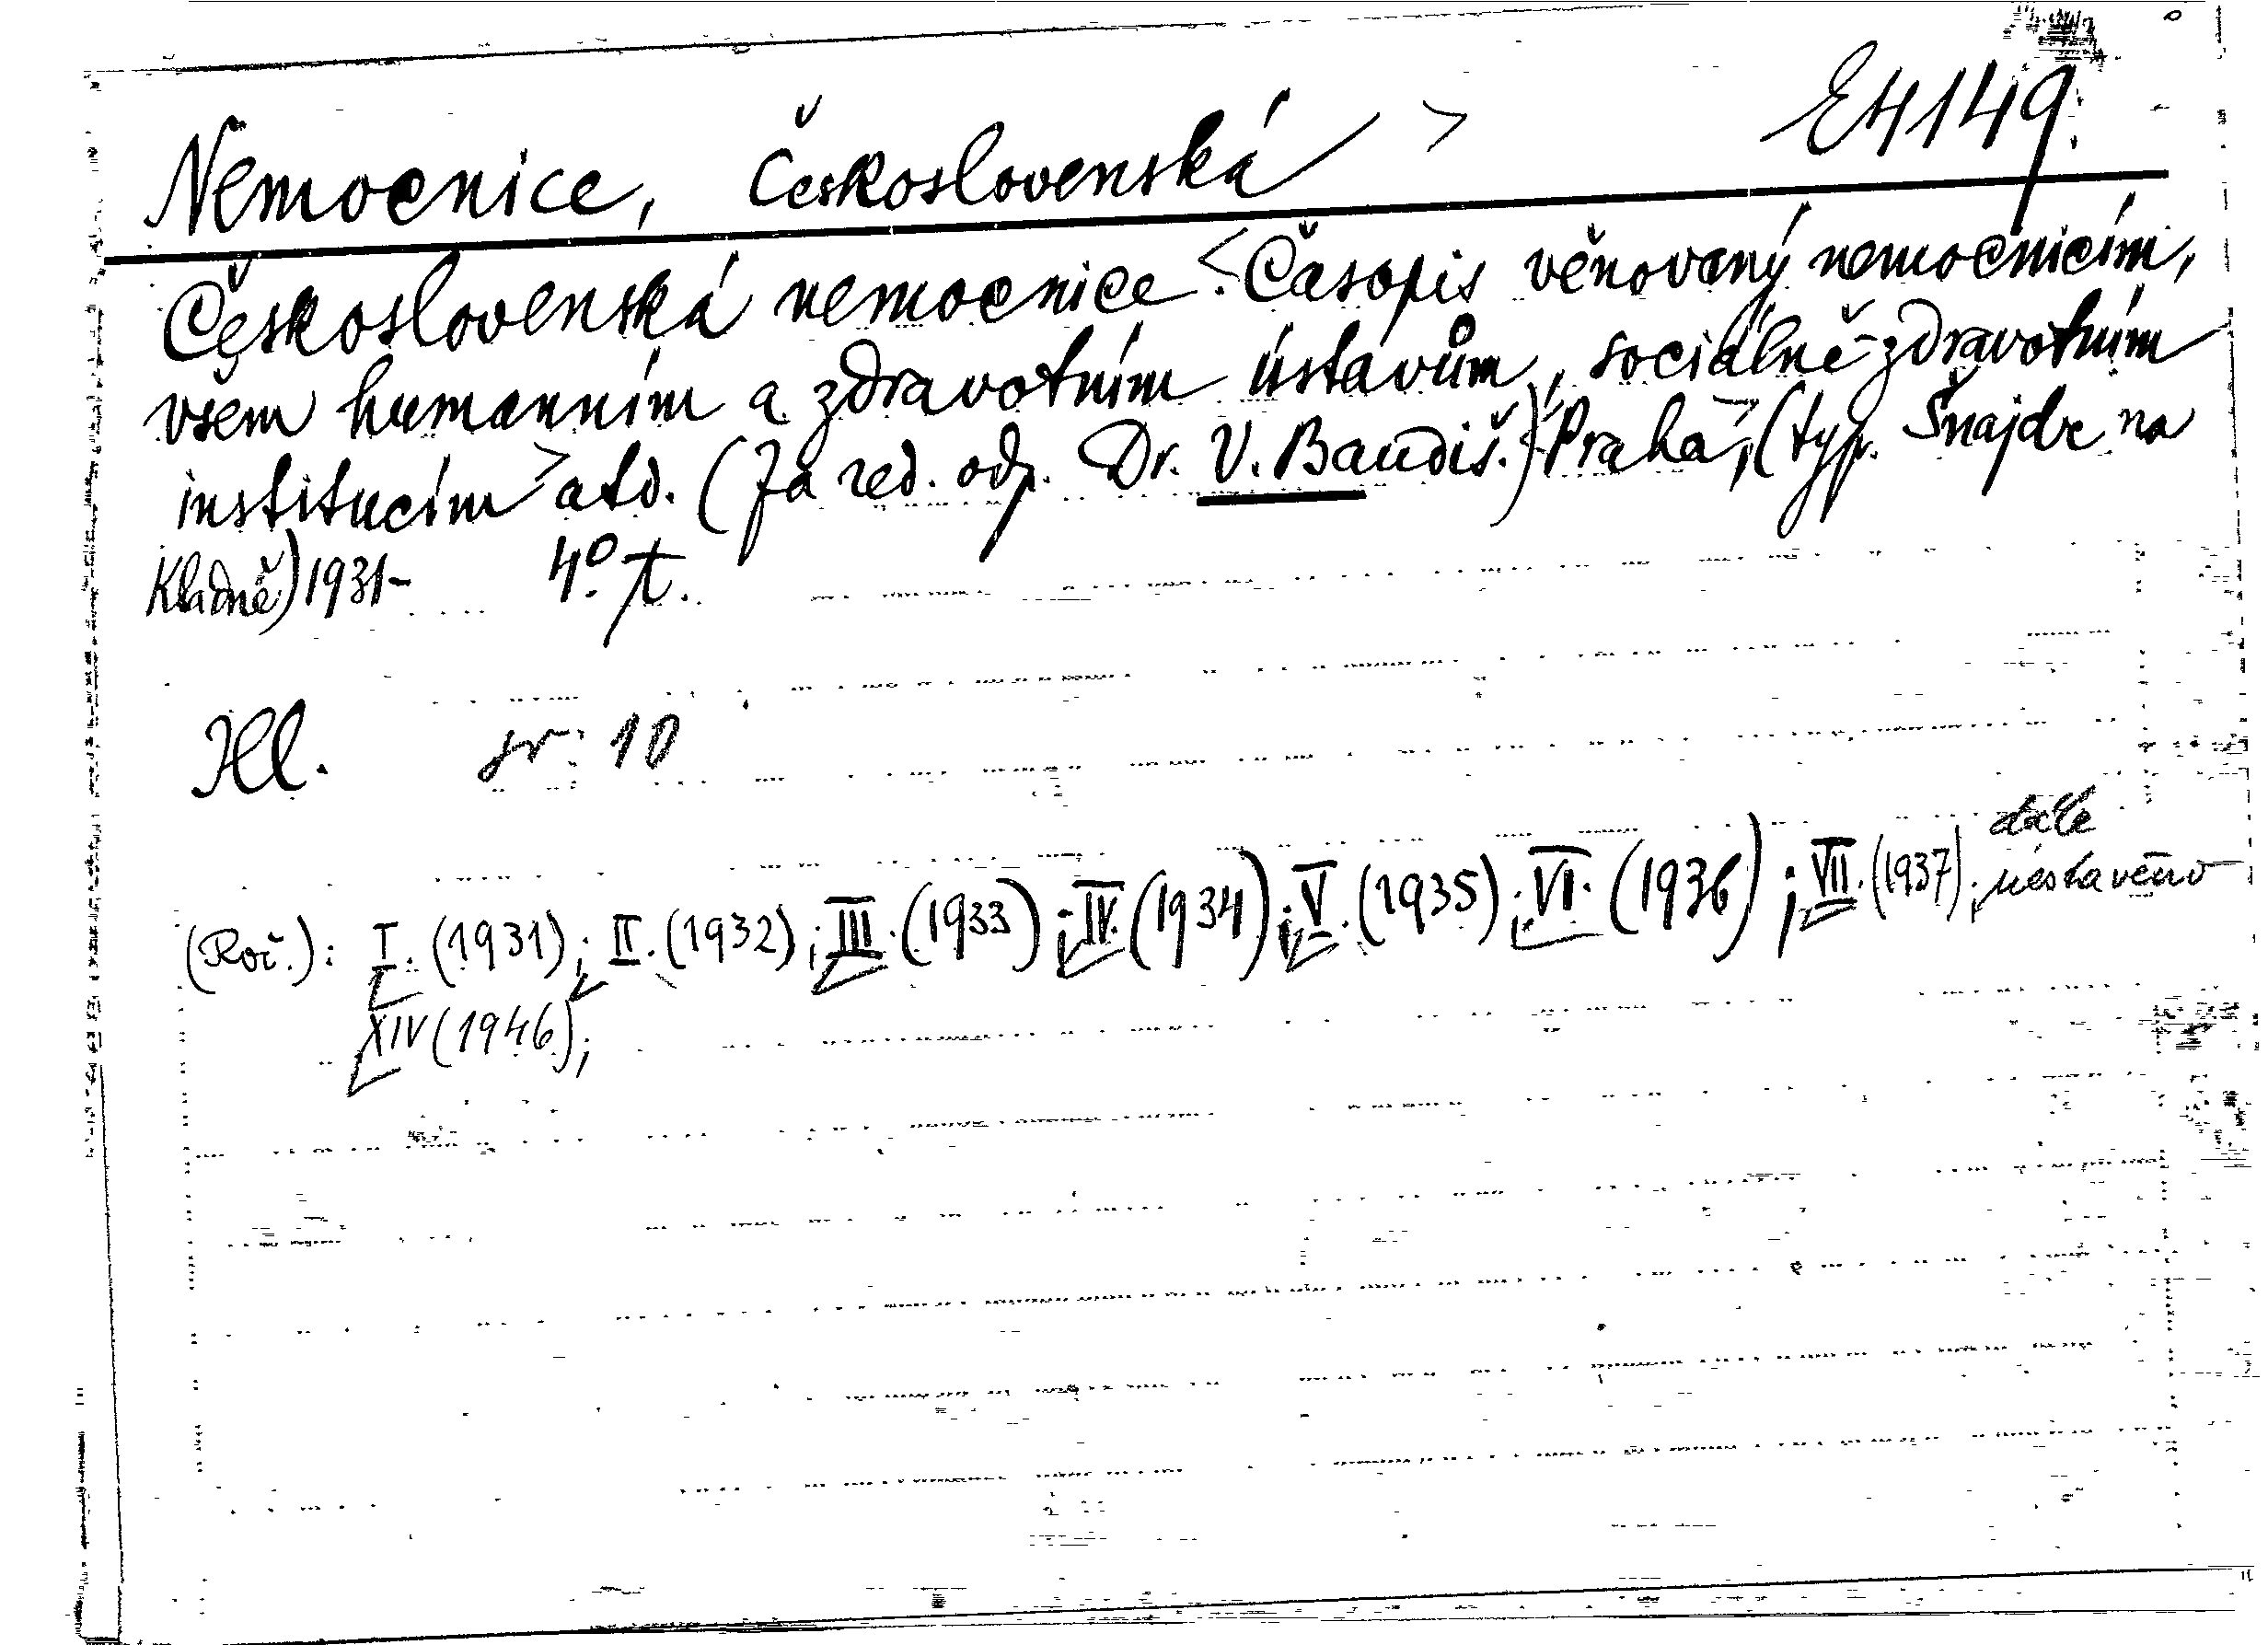 Nemocnice, Československá > E4149.
Československá nemocnice. < Časopis věnovaný nemocnicím,
všem humanním a zdravotním ústavům, sociálně-zdravotním
institucím > atd. (Za red. odp. Dr. V. Baudiš.) Praha, (typ. Šnajdr na
Kladně) 1931- 4°.
Hl. sv. 10
dále
(Roč.): I. (1931); II. (1932); III. (1933); IV. (1934); V. (1935); VI. (1936); VII. (1937); nestavěno
XIV (1946);